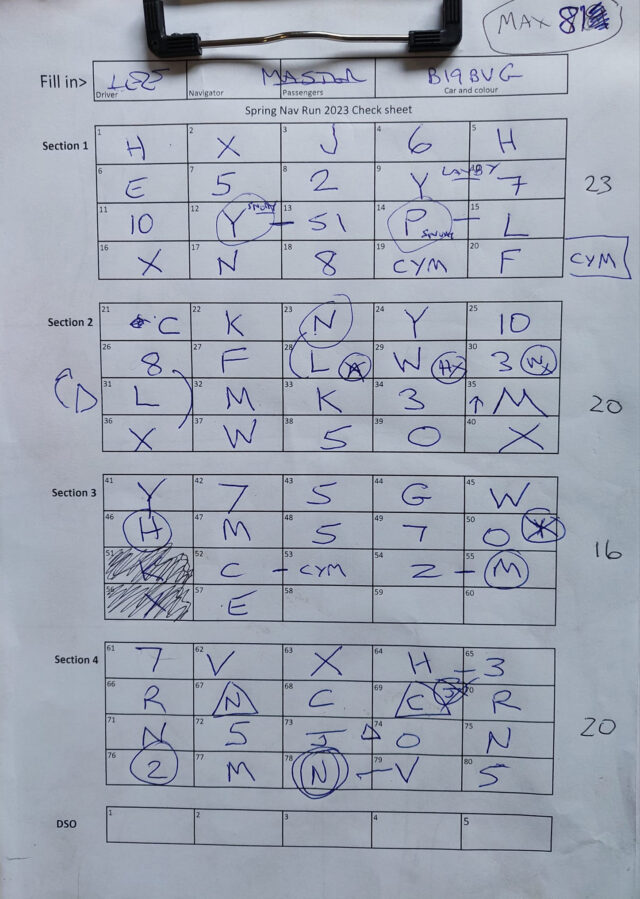 MAX 81
Fill in> LEE MASTER B19BVG
Driver Navigator Passengers Car and colour
Spring Nav Run 2023 Check sheet
Section 1 1 H 2 X 3 J 4 6 5 H
6 E 7 5 8 2 9 Y LAYBY 7 23
11 10 12 Y 13 51 14 P 15 L
16 X 17 N 18 8 19 CYM 20 F CYM
Section 2 21 C 22 K 23 N 24 Y 25 10
26 8 27 F 28 L 29 W 30 3
31 L 32 M 33 K 34 3 35 ↑ M 20
36 X 37 W 38 5 39 O 40 X
Section 3 41 Y 42 7 43 5 44 G 45 W
46 H 47 M 48 5 49 7 50 0
51 52 C - 53 CYM 54 2 - 55 M 16
56 57 E 58 59 60
Section 4 61 7 62 V 63 X 64 H - 65 3
66 R 67 N 68 C 69 C 70 R
71 N 72 5 73 J 74 O 75 N 20
76 2 77 M 78 N - 79 V 80 5
DSO 1 2 3 4 5